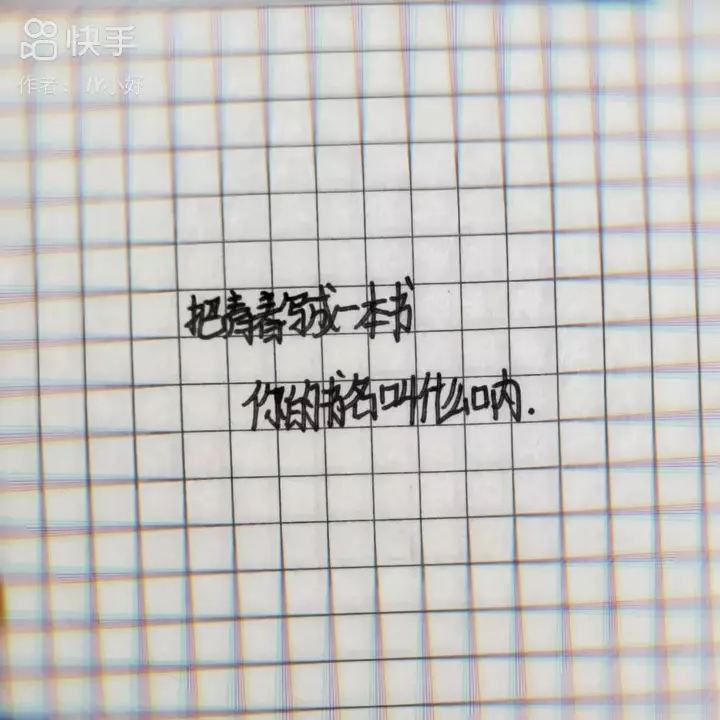 快手
作者：小好
把青春写成一本书
你的书名叫什么呐.